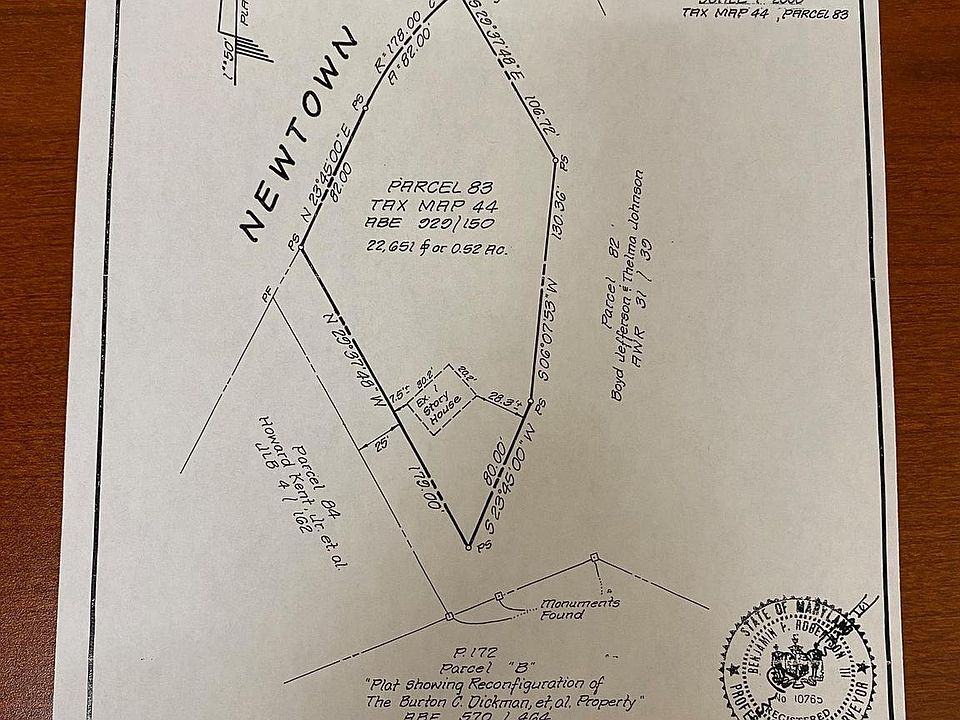 TAX MAP 44, PARCEL 83
1"=50'
NEWTOWN
R=178.00
A=82.00'
S 29°37'48" E
106.72'
PS
PS
N 23°45'00" E
82.00
PS
PF
PARCEL 83
TAX MAP 44
ABE 929/150
22,651 ⏍ or 0.52 Ac.
130.36'
S 06°07'53" W
Parcel 82
Boyd Jefferson & Thelma Johnson
AWR 31 / 39
N 29°37'48" W
7.5'±
30.2'
20.2'
Ex. 1
Story
House
28.3'±
PS
25'
179.00'
80.00'
S 23°45'00" W
PS
Parcel 84
Howard Kent, Jr. et. al.
JLB 4 / 162
Monuments
Found
P. 172
Parcel "B"
"Plat Showing Reconfiguration of
The Burton C. Dickman, et, al. Property"
ABE 570 / 464
STATE OF MARYLAND
BENJAMIN P. ROBERTSON III
No 10765
REGISTERED